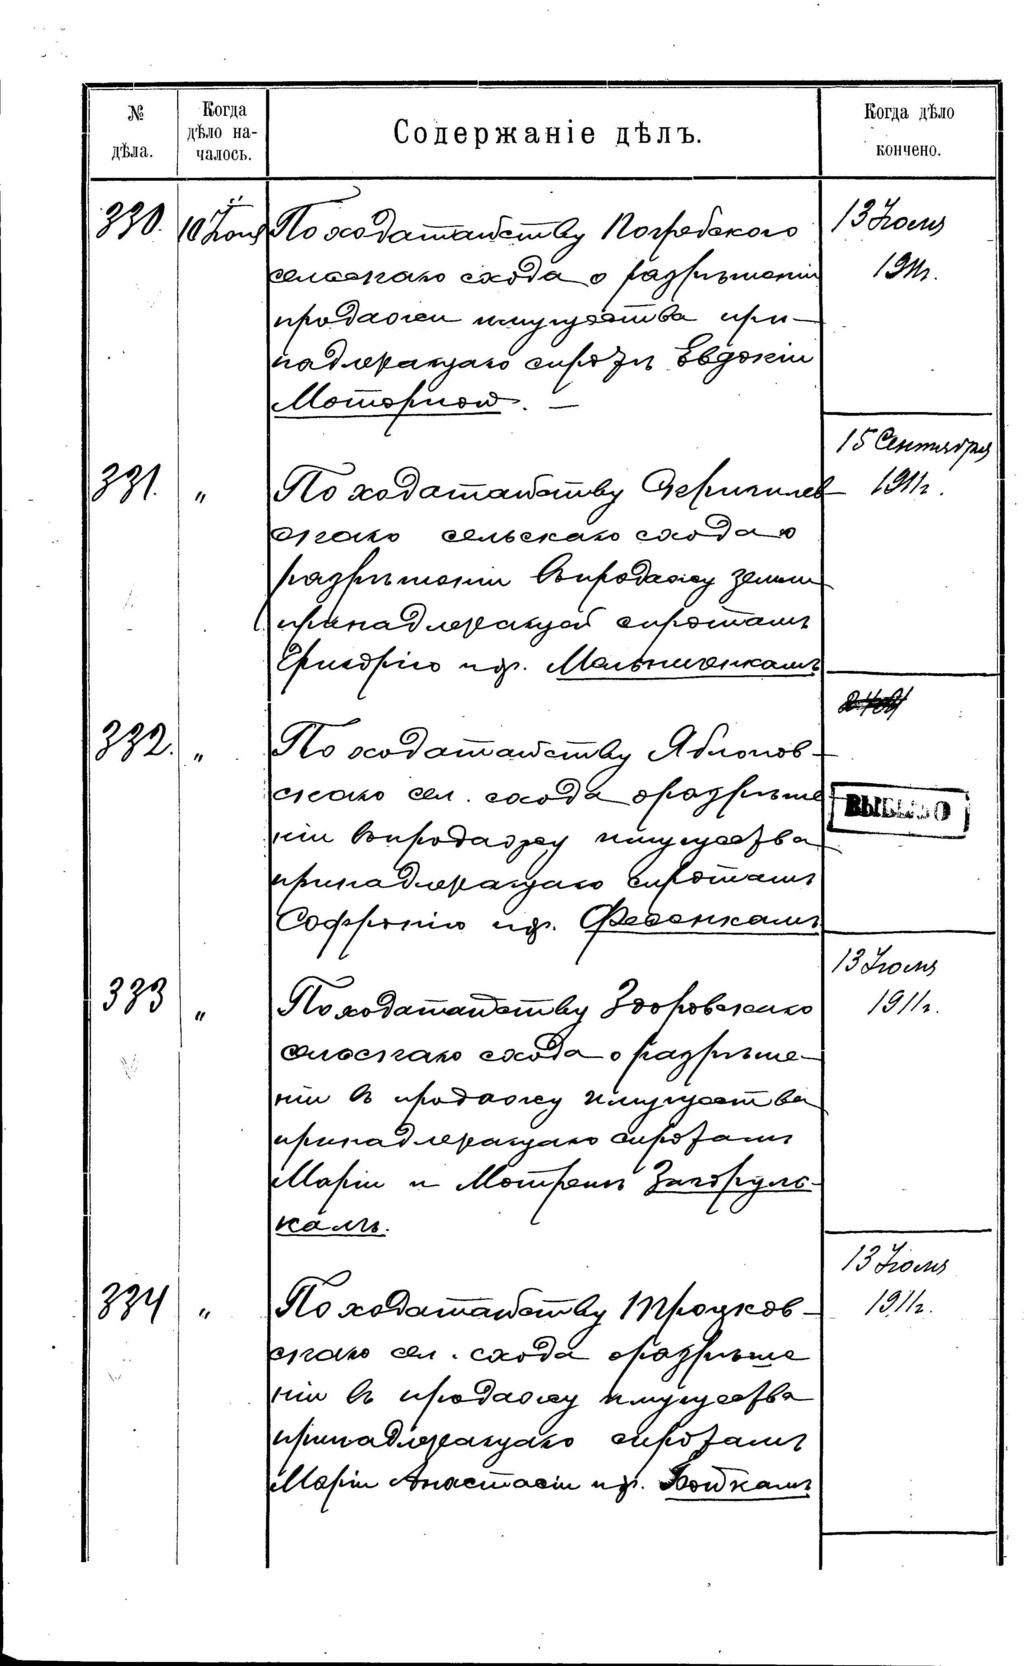 № дѣла.
Когда дѣло на-
чалось.
Содержаніе дѣлъ.
Когда дѣло
кончено.
330.
По ходатайству Погребского
сельскаго схода о разрѣшеніи
продажи имущества при-
надлежащаго сиротѣ Евдокіи
Моторной. —
13 Іюля
1911г.
331.
"
По ходатайству
скаго сельскаго схода о
разрѣшеніи въ продажу земли
принадлежащей сиротамъ
Григорію и др. Мельниченкамъ
15 Сентября
1911г.
332.
"
По ходатайству Яблонов-
скаго сел. схода о разрѣше
ніи въ продажу имущества
принадлежащаго сиротамъ
Софронію и др.
ВЫБЫЛО
333
"
По ходатайству Здоровскаго
сельскаго схода о разрѣше-
ніи въ продажу имущества
принадлежащаго сиротамъ
Маріи и Мотренѣ Загоруль-
камъ.
13 Іюля
1911г.
334
"
По ходатайству Процков-
скаго сел. схода о разрѣше
ніи въ продажу имущества
принадлежащаго сиротамъ
Маріи Анастасіи и др. Бойкамъ
13 Іюля
1911г.